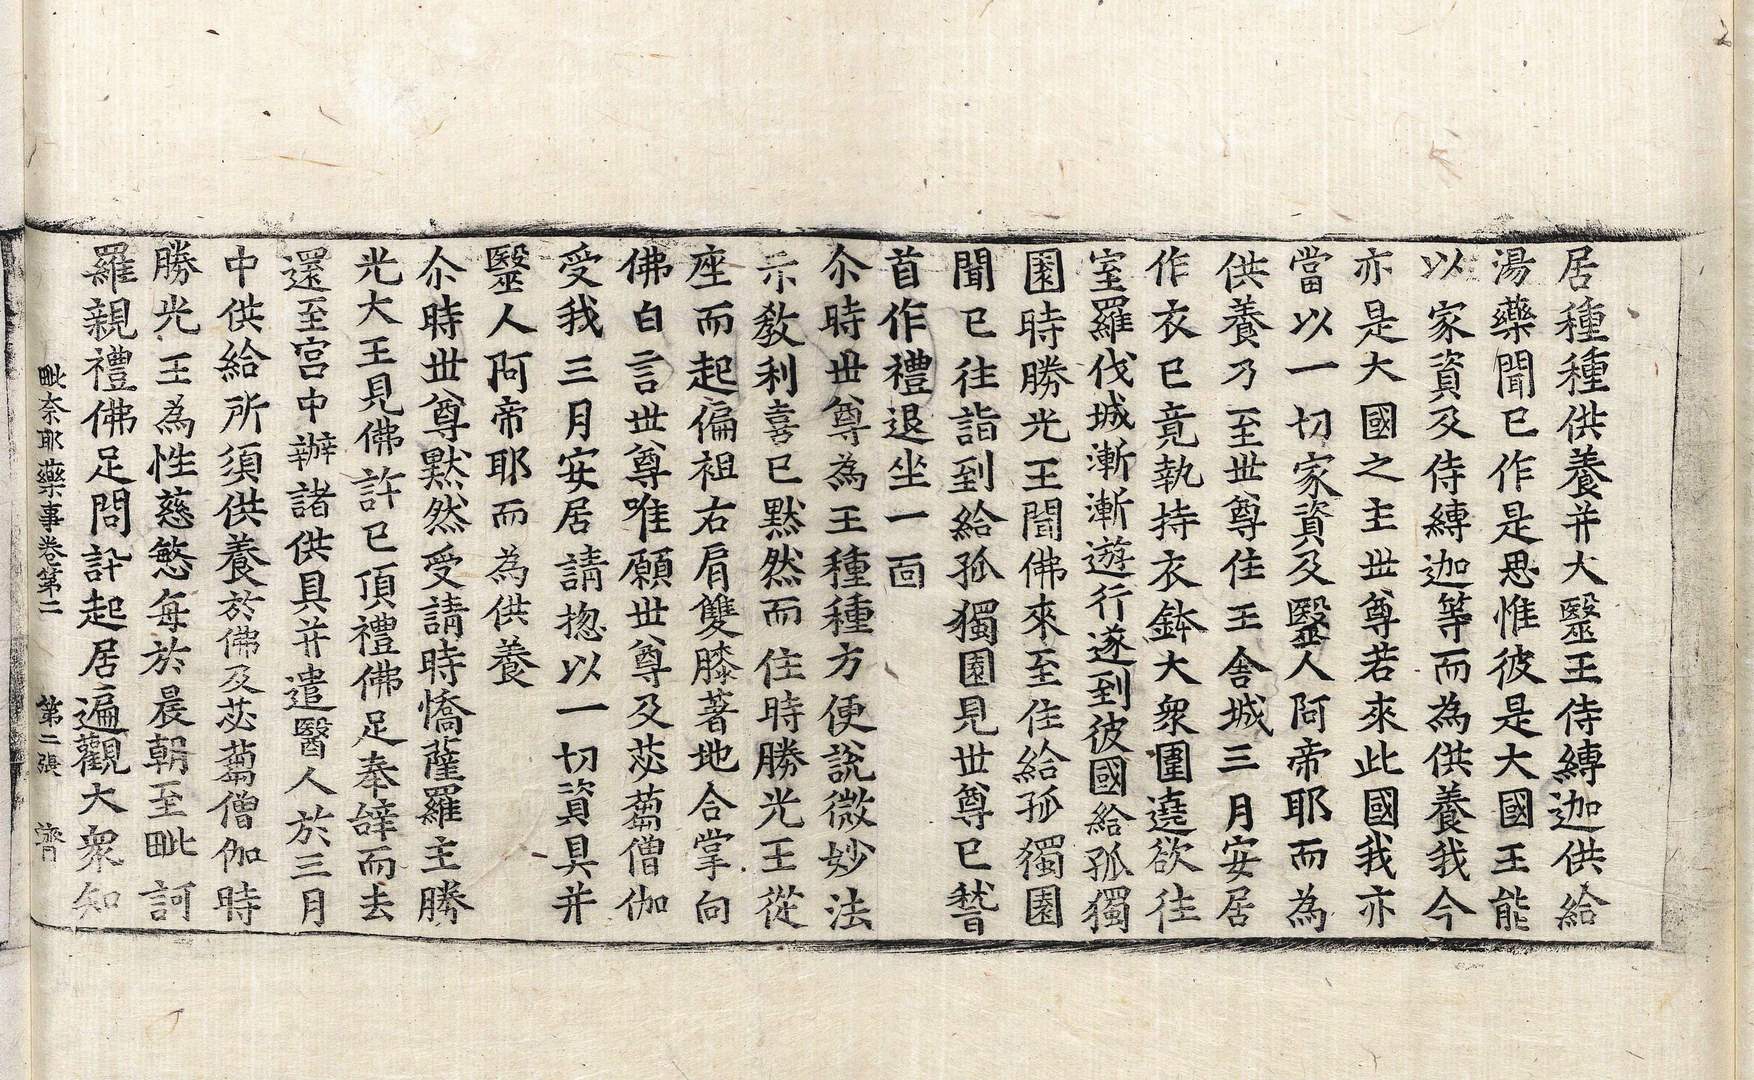 居種種供養并大醫王侍縛迦供給
湯藥聞已作是思惟彼是大國王能
以家資及侍縛迦等而為供養我今
亦是大國之主世尊若來此國我亦
當以一切家資及毉人阿帝耶而為
供養乃至世尊住王舍城三月安居
作衣已竟執持衣鉢大衆圍遶欲往
室羅伐城漸漸遊行遂到彼國給孤獨
園時勝光王聞佛來至住給孤獨園
聞已往詣到給孤獨園見世尊已稽
首作禮退坐一面
尒時世尊為王種種方便說微妙法
示教利喜已黙然而住時勝光王從
座而起偏袒右肩雙膝著地合掌向
佛白言世尊唯願世尊及苾蒭僧伽
受我三月安居請揔以一切資具并
毉人阿帝耶而為供養
尒時世尊黙然受請時憍薩羅主勝
光大王見佛許已頂禮佛足奉辝而去
還至宮中辦諸供具并遣醫人於三月
中供給所須供養於佛及苾蒭僧伽時
勝光王為性慈慜每於晨朝至毗訶
羅親禮佛足問訊起居遍觀大衆知
毗奈耶藥事卷第二　第二張　齊